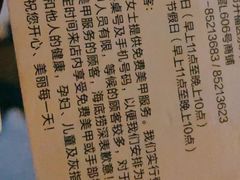 L606号商铺
-85213683 / 85213623
日（早上11点至晚上10点）
节假日（早上11点至晚上10点）
女士提供免费美甲服务，我们实行
桌号及手机号码，以便我们安排为
人员有限，等候的顾客较多，对于
甲服务的顾客，海底捞深表歉意
定时间来店内享受免费美甲或手部
和他人的健康，孕妇、儿童及灰指
祝您开心，美丽每一天！